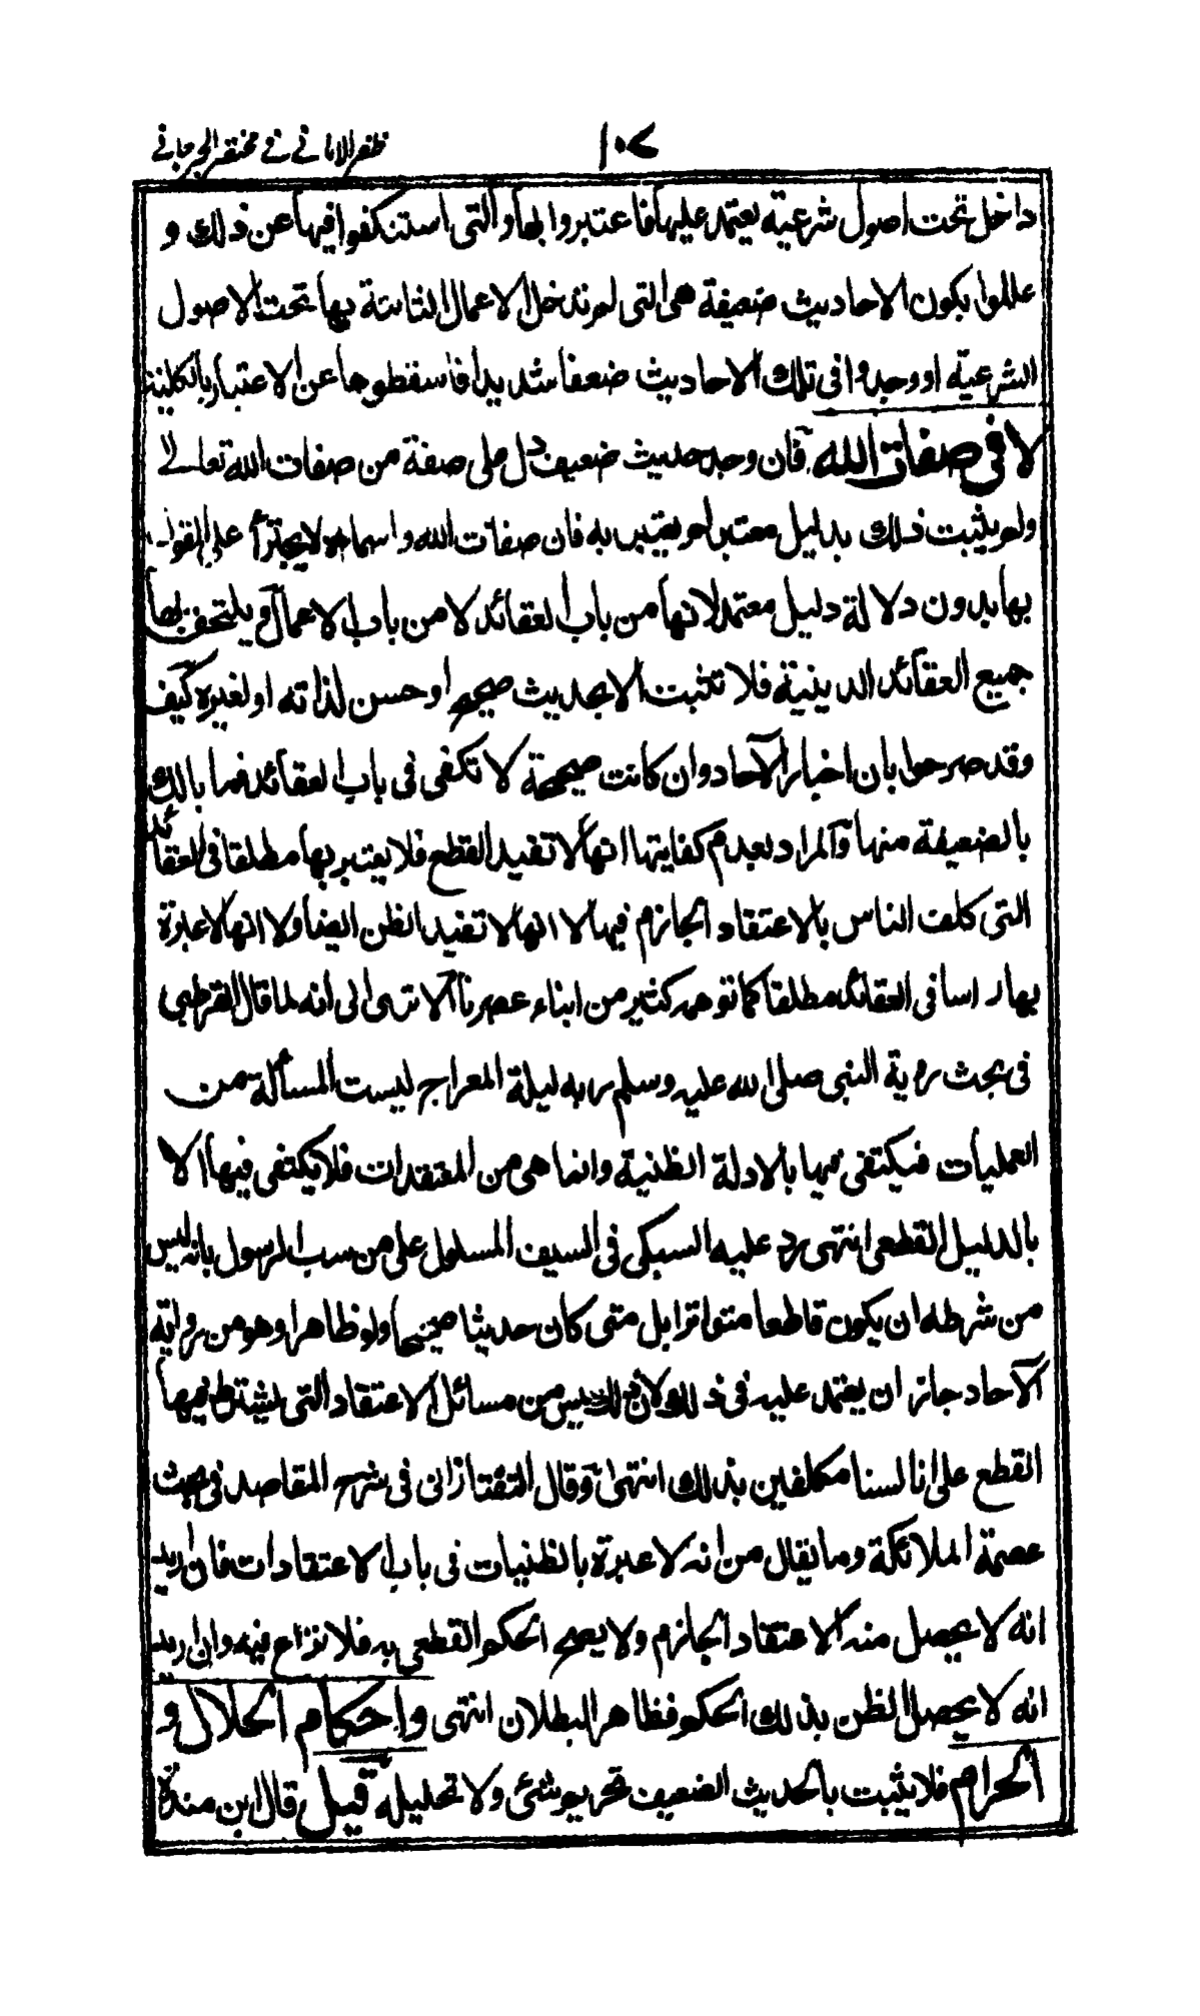 ١٠٧ ظفر الاماني في مختصر الجرجاني
داخل تحت اصول شرعية يعتمد عليها فاعتبروا بها والتى استنكفوا فيها عن ذلك و
عللوا بكون الاحاديث ضعيفة هى التى لم تدخل الاعمال الثابتة بها تحت الاصول
الشرعية او وجدوا فى تلك الاحاديث ضعفا شديدا فاسقطوها عن الاعتبار بالكلية
لا فى صفات الله فان وجد حديث ضعيف دل على صفة من صفات الله تعالى
ولم يثبت ذلك بدليل معتبر لم يعتبر به فان صفات الله واسماءه لا يجترأ على القول
بها بدون دلالة دليل معتمد لانها من باب العقائد لا من باب الاعمال ويلتحق بها
جميع العقائد الدينية فلا تثبت الا بحديث صحيح او حسن لذاته او لغيره كيف
وقد صرحوا بان اخبار الآحاد وان كانت صحيحة لا تكفى فى باب العقائد فما بالك
بالضعيفة منها والمراد بعدم كفايتها انها لا تفيد القطع فلا يعتبر بها مطلقا فى العقائد
التى كلف الناس بالاعتقاد الجازم فيها لا انها لا تفيد الظن ايضا ولا انها لا عبرة
بها راسا فى العقائد مطلقا كما توهمه كثير من ابناء عصرنا الا ترى الى انه لما قال القرطبى
فى بحث روية النبى صلى الله عليه وسلم ربه ليلة المعراج ليست المسألة من
العمليات فيكتفى فيها بالادلة الظنية وانما هى من المعتقدات فلا يكتفى فيها الا
بالدليل القطعى انتهى رد عليه السبكى فى السيف المسلول على من سب الرسول بانه ليس
من شرطه ان يكون قاطعا متواترا بل متى كان حديثا صحيحا ولو ظاهرا وهو من رواية
الآحاد جاز ان يعتمد عليه فى ذلك لان ذلك ليس من مسائل الاعتقاد التى يشترط فيها
القطع على انا لسنا مكلفين بذلك انتهى وقال التفتازانى فى شرح المقاصد فى بحث
عصمة الملائكة وما يقال من انه لا عبرة بالظنيات فى باب الاعتقادات فان اريد
انه لا يحصل منه الاعتقاد الجازم ولا يصح الحكم القطعى به فلا نزاع فيه وان اريد
انه لا يحصل الظن بذلك الحكم فظاهر البطلان انتهى واحكام الحلال و
الحرام فلا يثبت بالحديث الضعيف تحريم شئ ولا تحليله قيل قال ابن مندة